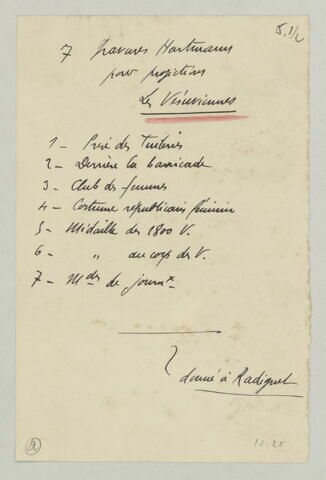 5.1/2
7 gravures Hartmann
pour projections
Les Vésuviennes
1 - Prise des Tuileries
2 - Derrière la barricade
3 - Club des femmes
4 - Costume républicain féminin
5 - Médaille des 1800 V.
6 - " au corps des V.
7 - Mdes de journx
donné à Radiguet
a
12.25